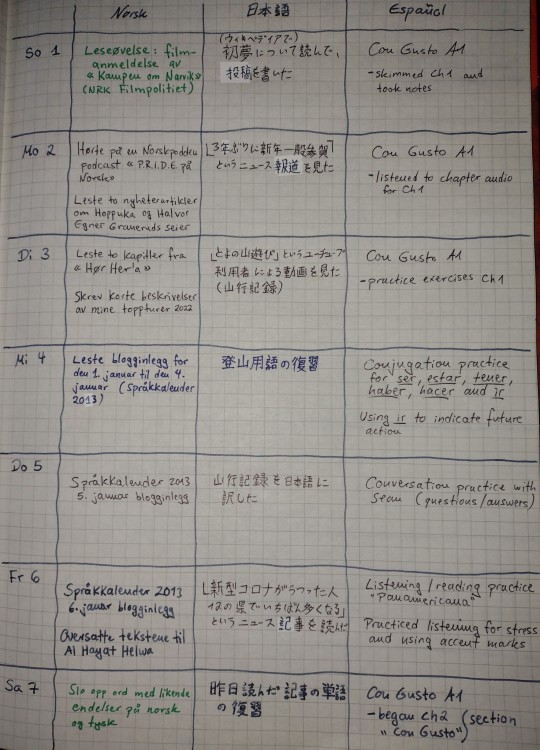 Norsk 日本語 Español
So 1
Leseøvelse: film-
anmeldelse av
«Kampen om Narvik»
(NRK Filmpolitiet)
(ウィキペディアで)
初夢について読んで、
投稿を書いた
Con Gusto A1
-skimmed Ch1 and
took notes
Mo 2
Hørte på en Norskpodden
podcast «P.R.I.D.E på
Norsk»
Leste to nyheterartikler
om Hoppuka og Halvor
Egner Graneruds seier
「3年ぶりに新年一般参賀」
というニュース報道を見た
Con Gusto A1
-listened to chapter audio
for Ch1
Di 3
Leste to kapitler fra
«Hør Her'a»
Skrev korte beskrivelser
av mine toppturer 2022
「とよの山遊び」というユーチューブ
利用者による動画を見た
(山行記録)
Con Gusto A1
-practice exercises Ch1
Mi 4
Leste blogginlegg for
den 1. januar til den 4.
januar (Språkkalender
2013)
登山用語の復習
Conjugation practice
for ser, estar, tener,
haber, hacer and ir
Using ir to indicate future
action
Do 5
Språkkalender 2013
5. januar blogginlegg
山行記録を日本語に
訳した
Conversation practice with
Sean (questions/answers)
Fr 6
Språkkalender 2013
6. januar blogginlegg
Oversatte tekstene til
Al Hayat Helwa
「新型コロナがうつった人
12の県でいちばん多くなる」
というニュース記事を読んだ
Listening/reading practice
"Panamericana"
Practiced listening for stress
and using accent marks
Sa 7
Slo opp ord med liknende
endelser på norsk
og tysk
昨日読んだ記事の単語
の復習
Con Gusto A1
-began Ch2 (section
"Con Gusto")